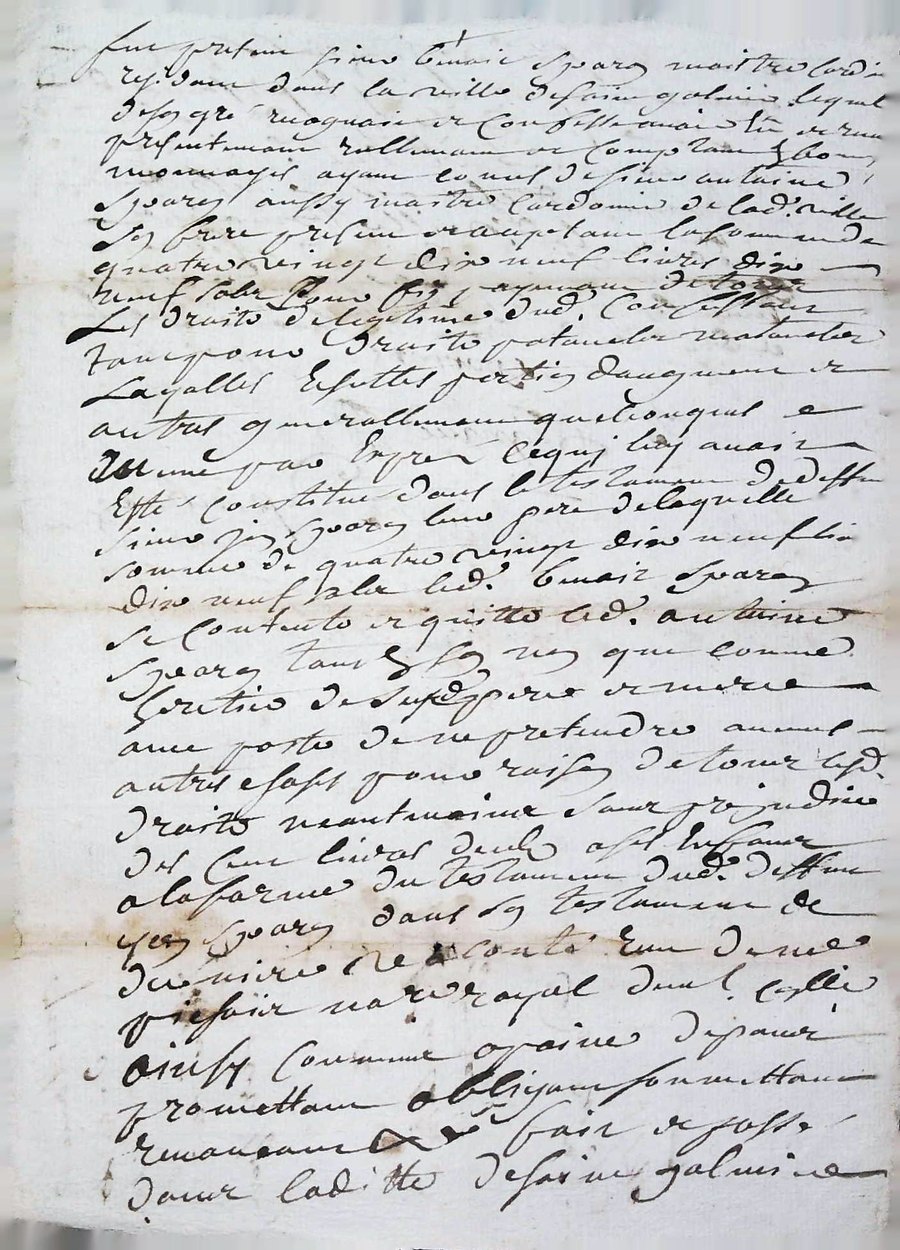 fut present sieur benoit Sparon maistre cord
resident dans la ville de saint galmier lequel
de son gré recognait et confesse avoir eu et receu
presentement reallement et comptant en bonne
monnoyes ayant cours de sieur antoine
Sparon aussy maistre cordonnier de lad. ville
son frere present et acceptant la somme de
quatre vingt dix neuf livres dix
neuf sols pour fin payement de tous
Les droits de legitime dud. confessant
tant pour droits paternels maternels
Layalles Eschettes portion daugment et
autres generallement quelconques e
mesme par Expres ce qui luy avoit
Esté constitué dans le testament de deffunt
sieur jean Sparon leur pere de laquelle
somme de quatre vingt dix neuf livres
dix neuf sols led. benoit Sparon
se contente et quitte led. antoine
Sparon tant en son nom que comme
heritier de sesd. pere et mere
avec pacte de ne pretendre aucunes
autres choses pour raison de tous lesd.
droits neantmoins sans prejudice
des cent livres deub a ses Enfans
a la forme du testament dud. deffunt
jean Sparon dans son testament de
derniere volonté Reçu de me
 notaire royal dud.
ainsy comme a peine depans
promettant obligeant soumettant
renonceant &c fait et passé
dans laditte de saint galmier